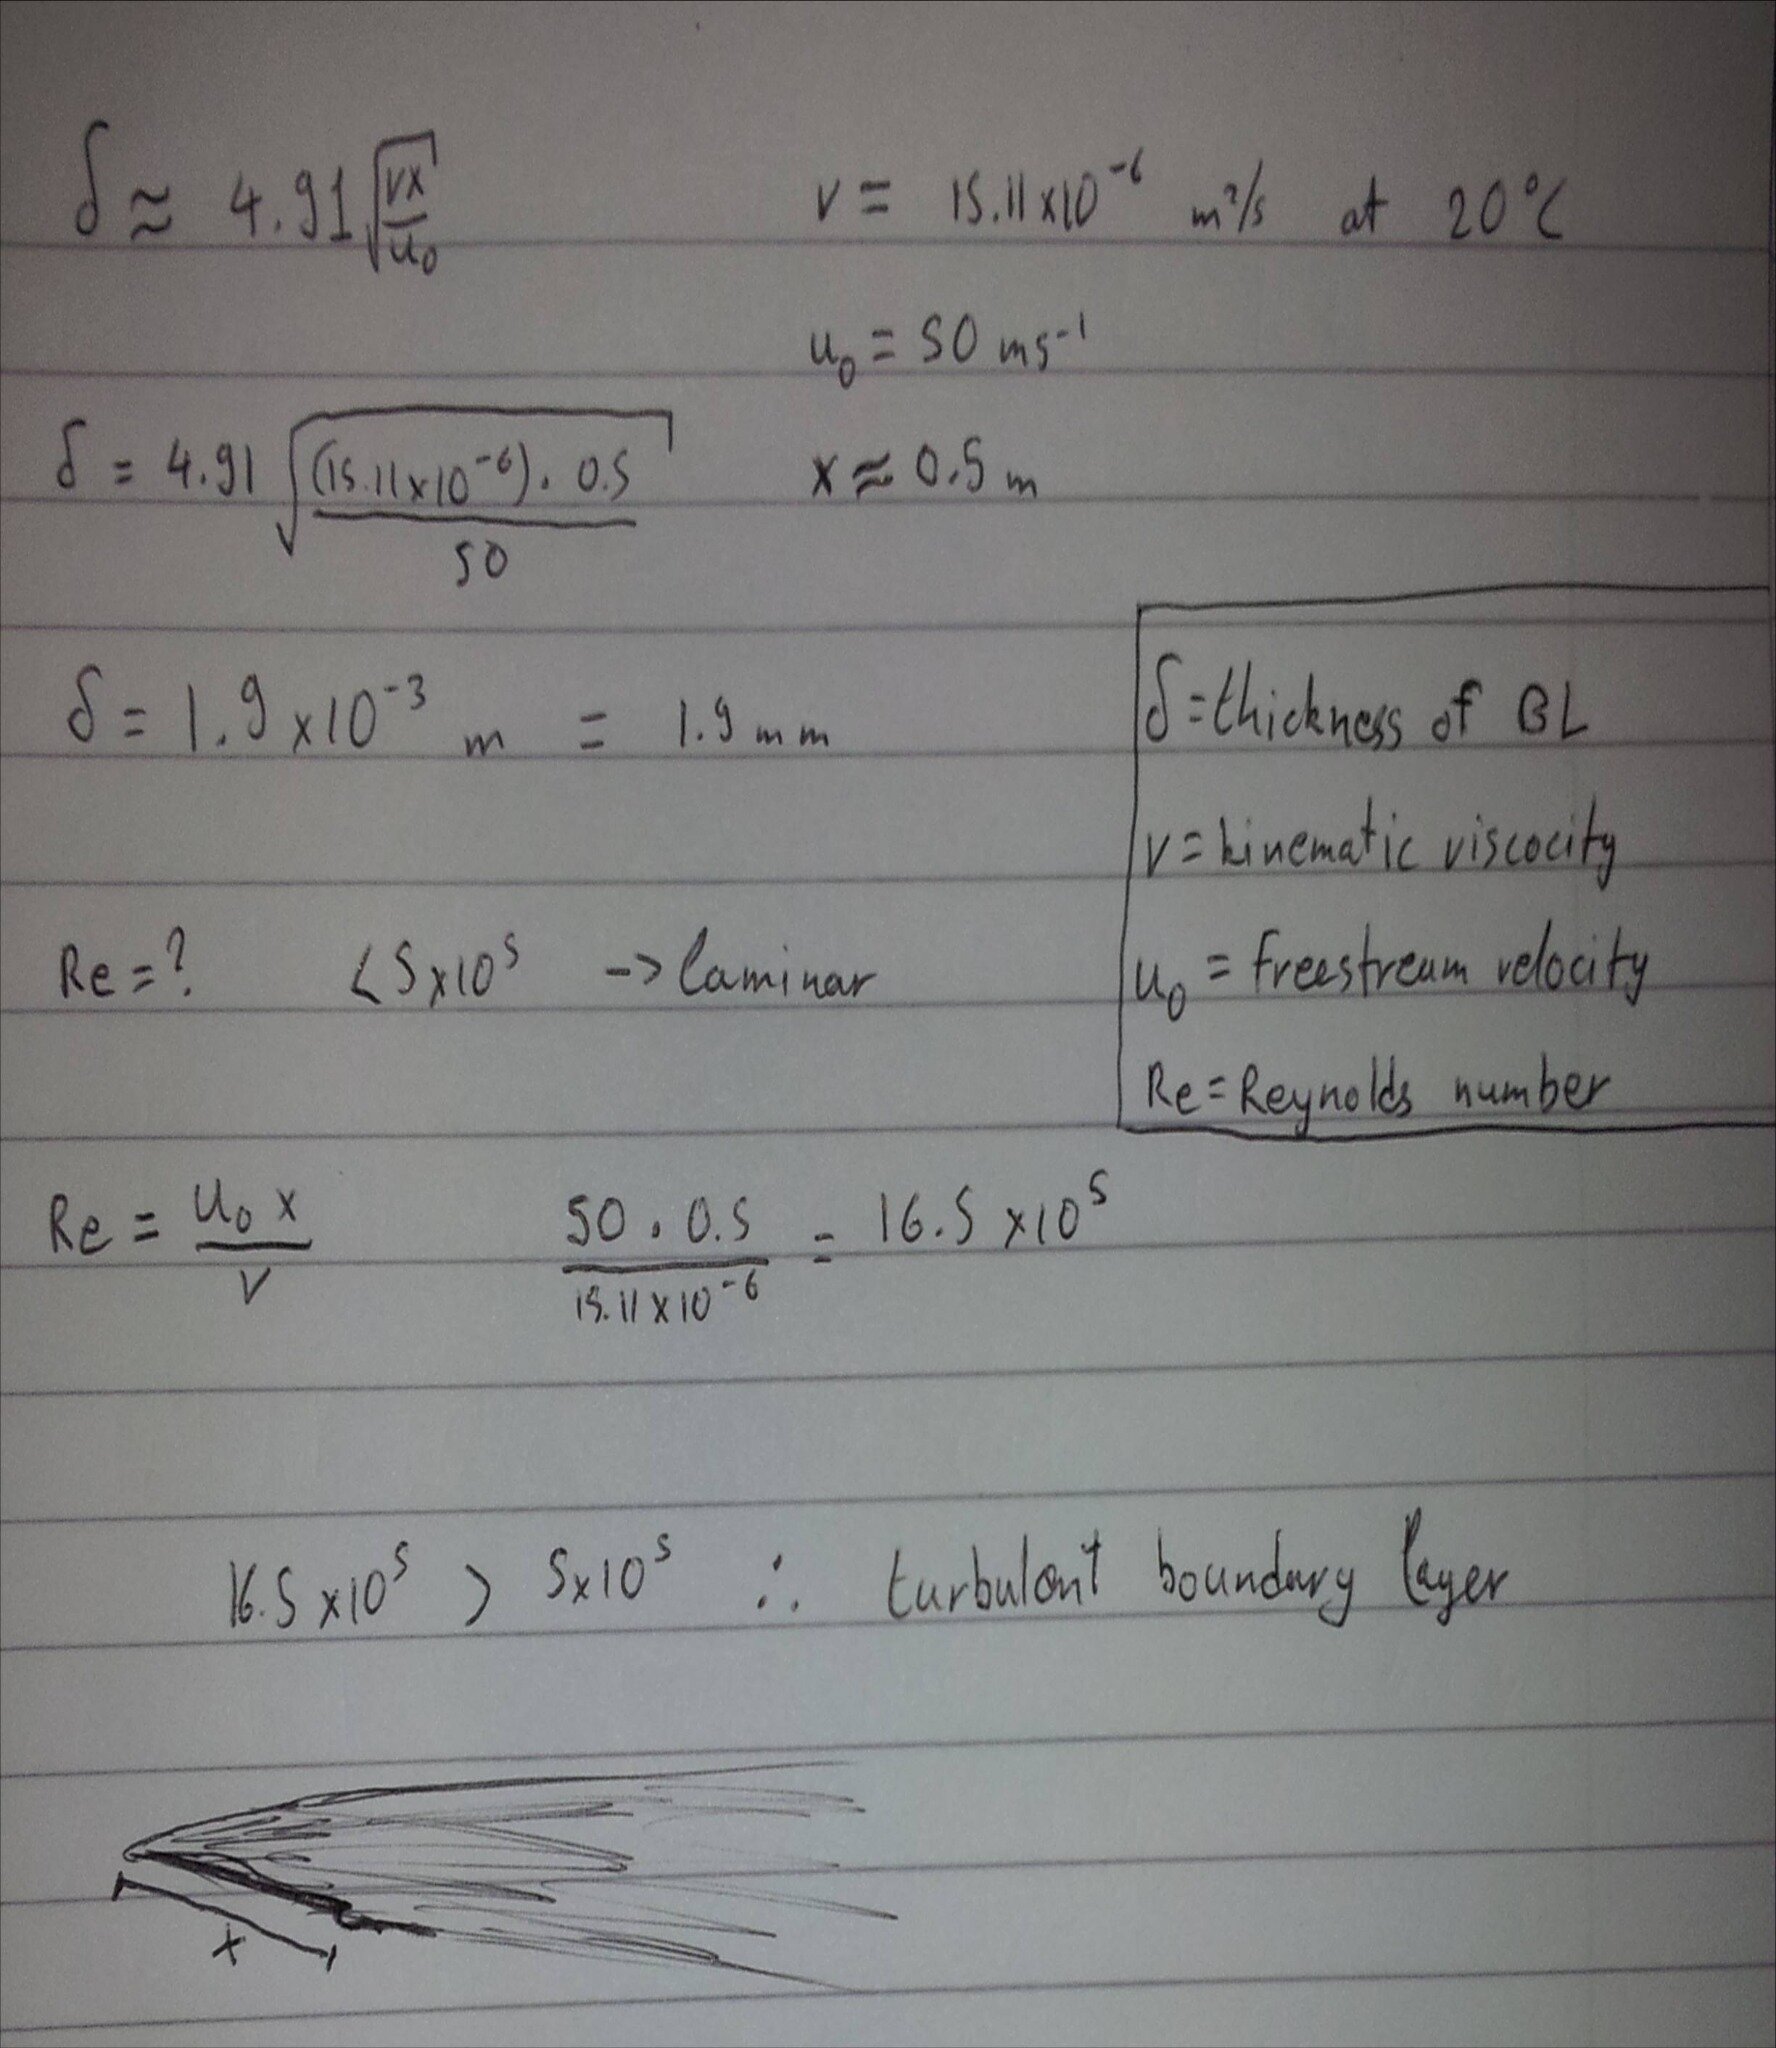 δ ≈ 4.91 √(vx/u₀)   v = 15.11x10⁻⁶ m²/s at 20°C
u₀ = 50 ms⁻¹
δ = 4.91 √((15.11x10⁻⁶) . 0.5 / 50)   x ≈ 0.5 m
δ = 1.9 x10⁻³ m = 1.9 mm
δ = thickness of BL
v = kinematic viscocity
u₀ = freestream velocity
Re = Reynolds number
Re = ?   < 5x10⁵ -> laminar
Re = u₀ x / v   50 . 0.5 / 15.11 x 10⁻⁶ = 16.5 x10⁵
16.5 x10⁵ > 5x10⁵ ∴ turbulent boundary layer
x